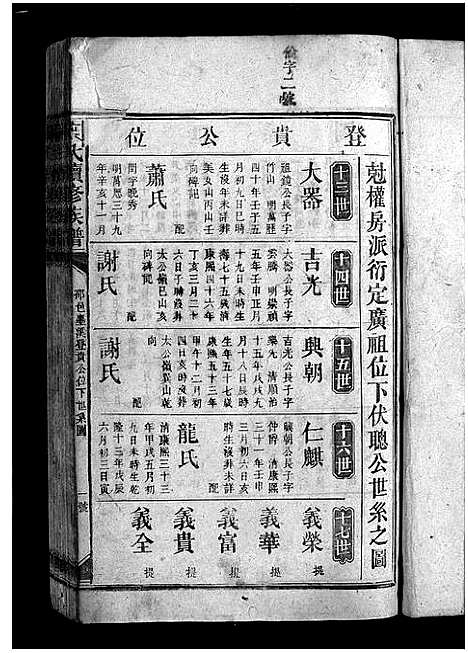 位公貴登
尅權房派衍定廣祖位下伏聰公世系之圖
十三世
大器
祖鏡公長子字
竹山 明萬歷
四十年壬子五
月初九日巳時
生沒年未詳葬
美女山丙山壬
向碑記 配
蕭氏
閨字晚秀
明萬歷三十九
年辛亥十一月
十四世
吉光
大器公長子字
雲騰 明崇禎
五年壬申正月
十九日未時生
海七十五歲清
康熙四十六年
丁亥三月二十
六日子時歿葬
太公嶺巳山亥
向碑記 配
謝氏
十五世
興朝
吉光公長子字
榮先 清順治
十五年戊戌九
月十八日辰時
生年五十七歲
康熙五十三年
甲午十二月初
四日亥時沒葬
太公嶺巽山乾
向 配
謝氏
十六世
仁麒
興朝公長子字
仲爵 清康熙
三十一年壬申
三月初六日亥
時生沒葬未詳
配
龍氏
清康熙三十三
年甲戌五月初
九日未時生乾
隆十三年戊辰
六月初三日寅
十七世
義榮 提
義華 提
義富 提
義貴 提
義全 提
氏續修族譜
登貴公位下世系圖
一號